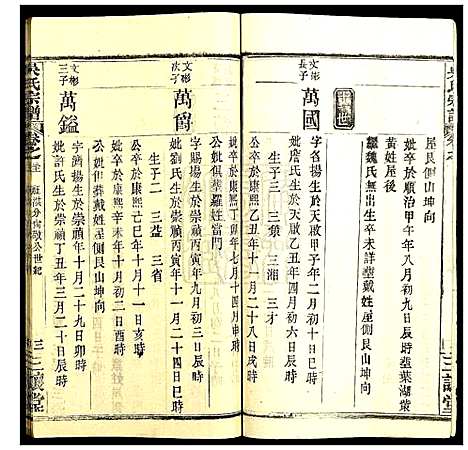 屋艮側山坤向
妣卒於順治甲午年九月初九日辰時葬葉湖
黃姓屋後
繼魏氏無出生卒未詳葬戴姓屋側艮山坤向
世
文彬長子
萬國
字名揚生於天啟甲子年二月初八日辰時
妣詹氏生於天啟乙丑年四月初六日辰時
生子三 三 三湘 三才
公卒於康熙乙丑年十一月二十八日戌時
公妣俱葬羅姓當門
文彬次子
萬
字賜揚生於崇禎丙寅年九月初三日辰時
妣劉氏生於崇禎丙寅年一月二十四日巳時
生子二 三益 三省
公卒於康熙己巳年十月十一日亥時
妣卒於康熙辛未年十月初二日酉時
公妣但葬戴姓屋側艮山坤向
文彬三子
萬鎰
字 揚生於崇禎年十月二十九日卯時
妣許氏生於崇禎丁丑年三月二十日辰時
吳氏宗譜
卷之
三讓堂